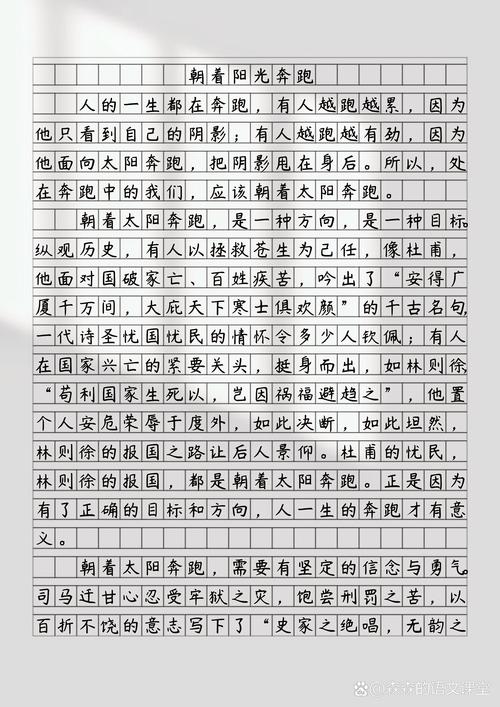 朝着阳光奔跑
人的一生都在奔跑，有人越跑越累，因为
他只看到自己的阴影；有人越跑越有劲，因为
他面向太阳奔跑，把阴影甩在身后。所以，处
在奔跑中的我们，应该朝着太阳奔跑。
朝着太阳奔跑，是一种方向，是一种目标。
纵观历史，有人以拯救苍生为己任，像杜甫，
他面对国破家亡、百姓疾苦，吟出了“安得广
厦千万间，大庇天下寒士俱欢颜”的千古名句，
一代诗圣忧国忧民的情怀令多少人钦佩；有人
在国家兴亡的紧要关头，挺身而出，如林则徐，
“苟利国家生死以，岂因祸福避趋之”，他置
个人安危荣辱于度外，如此决断，如此坦然，
林则徐的报国之路让后人景仰。杜甫的忧民，
林则徐的报国，都是朝着太阳奔跑。正是因为
有了正确的目标和方向，人一生的奔跑才有意
义。
朝着太阳奔跑，需要有坚定的信念与勇气。
司马迁甘心忍受牢狱之灾，饱尝刑罚之苦，以
百折不饶的意志写下了“史家之绝唱，无韵之
百家号@森森的语文课堂